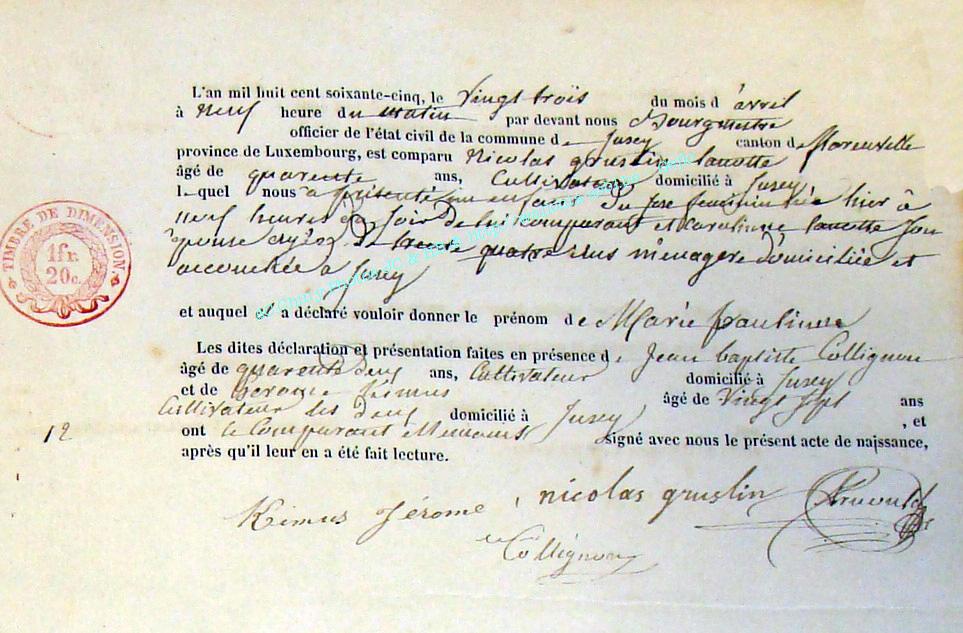 L'an mil huit cent soixante-cinq, le Vingt trois du mois d' avril
à neuf heure du matin par devant nous Bourgmestre
officier de l'état civil de la commune de Jusey canton de
province de Luxembourg, est comparu Nicolas gruslin lamotte
âgé de quarente ans, Cultivateur domicilié à Jusey
lequel nous a présenté un enfant du sexe feminin née hier à
neuf heures du soir de lui comparant et lamotte son
épouse agée de trente quatre ans ménagère domiciliée et
accouchée à Jusey
et auquel a déclaré vouloir donner le prénom de Marie paulinne
Les dites déclaration et présentation faites en présence de Jean baptiste Collignon
âgé de quarente deux ans, Cultivateur domicilié à Jusey
et de Kimus âgé de Vingt sept ans
Cultivateur les deux domicilié à Jusey , et
ont le Comparant et temoins signé avec nous le présent acte de naissance,
12
après qu'il leur en a été fait lecture.
Kimus Jérome nicolas gruslin
Collignon
TIMBRE DE DIMENSION
1fr.
20c.